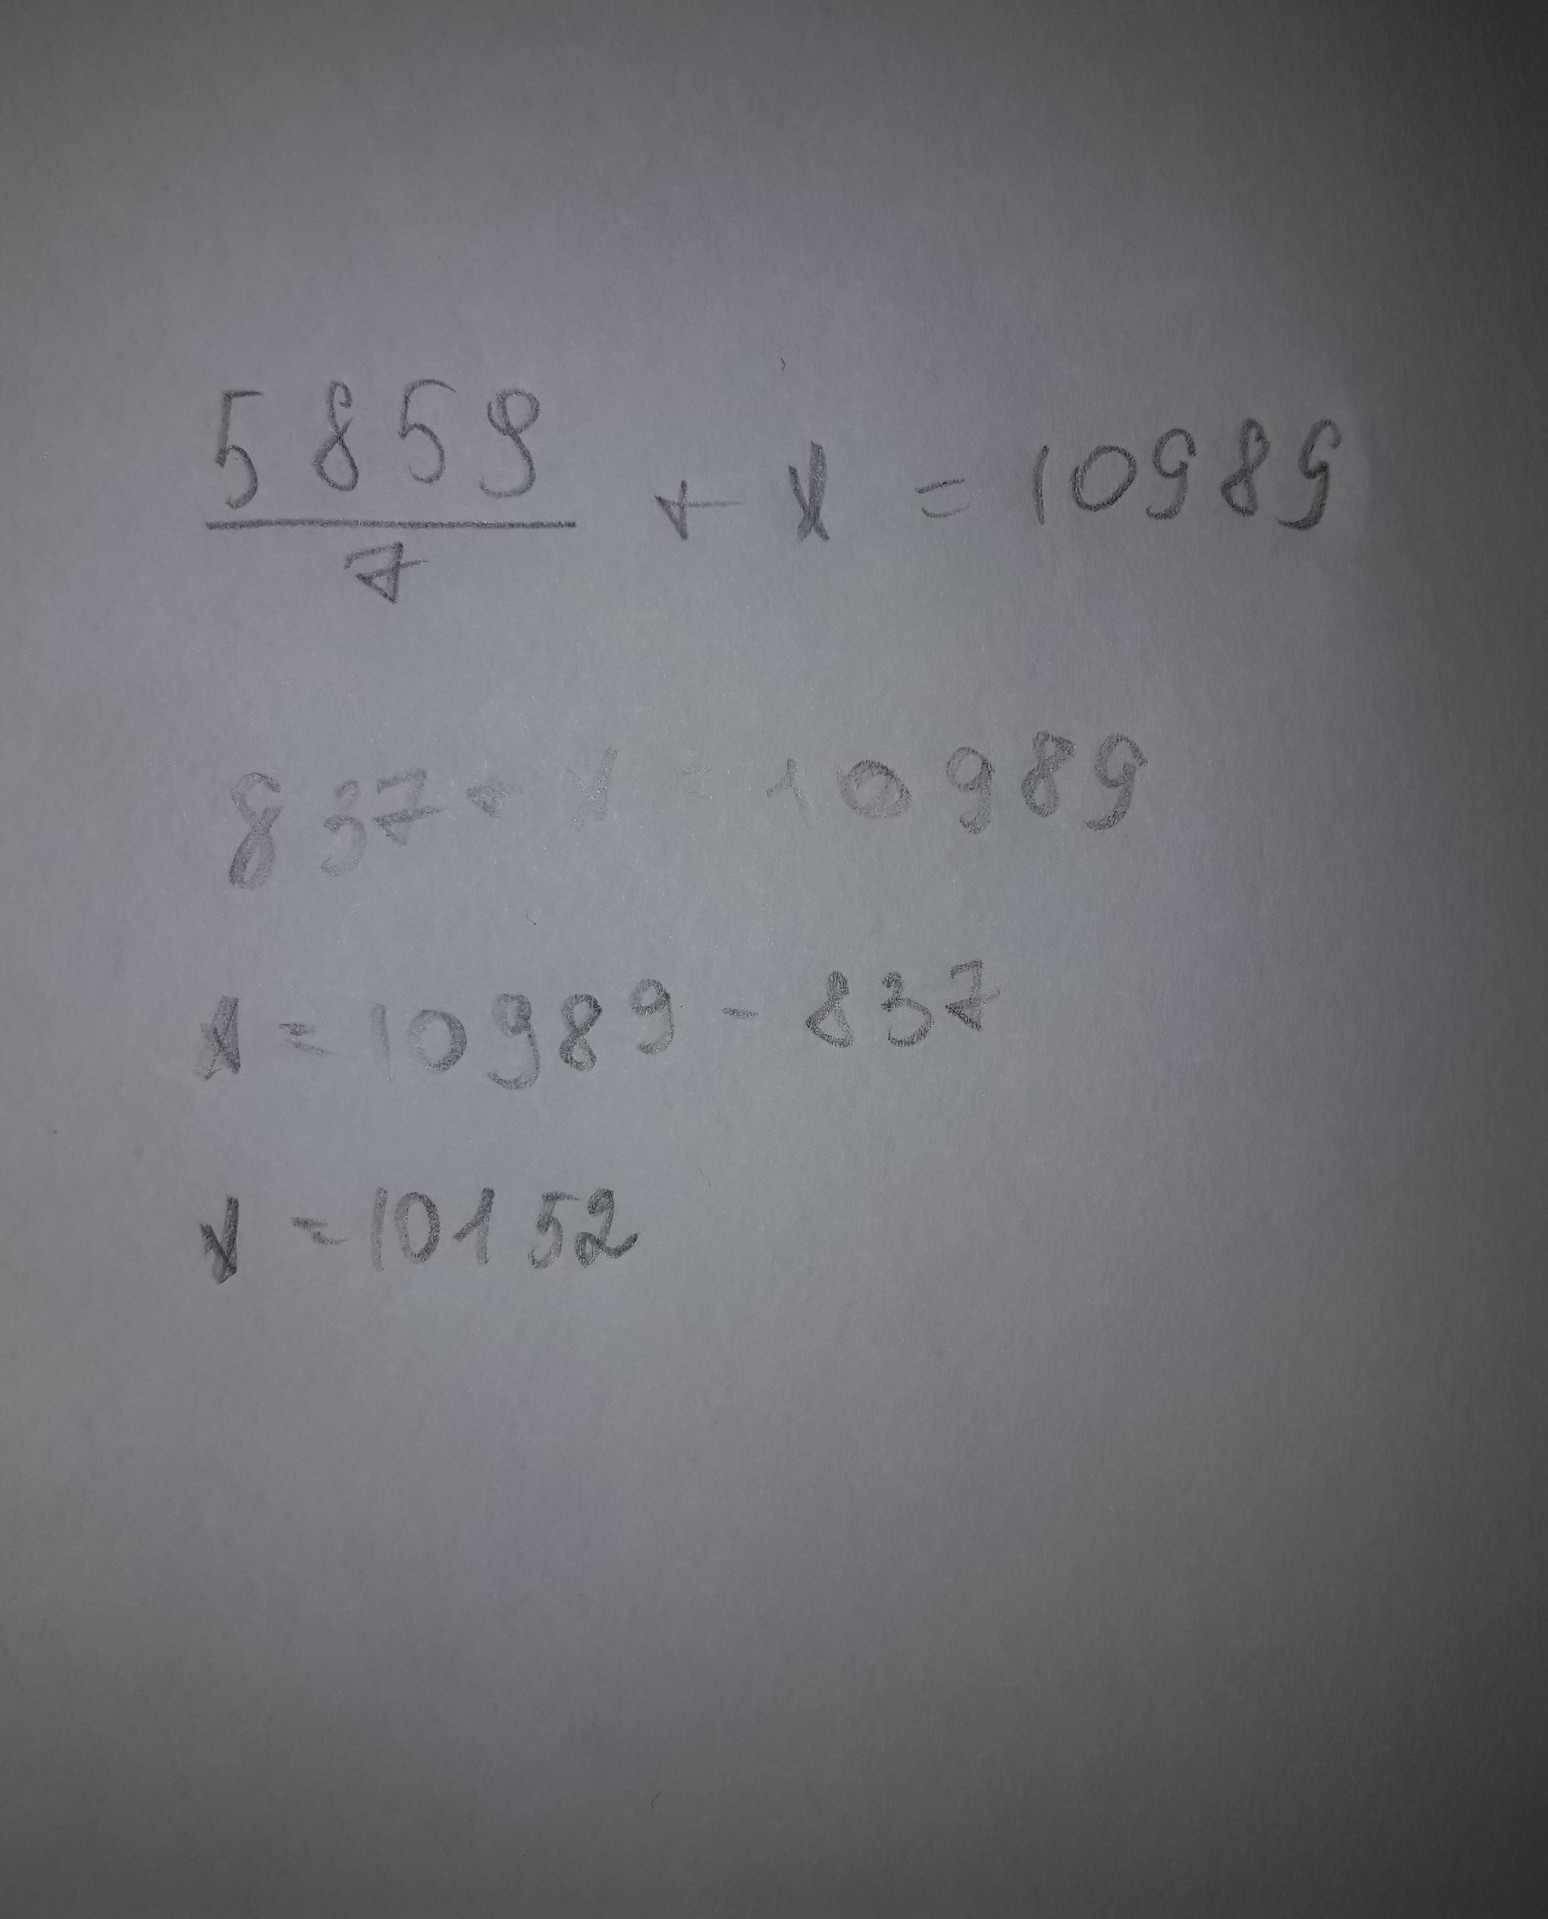 5859/7 + x = 10989
837 + x = 10989
x = 10989 - 837
x = 10152